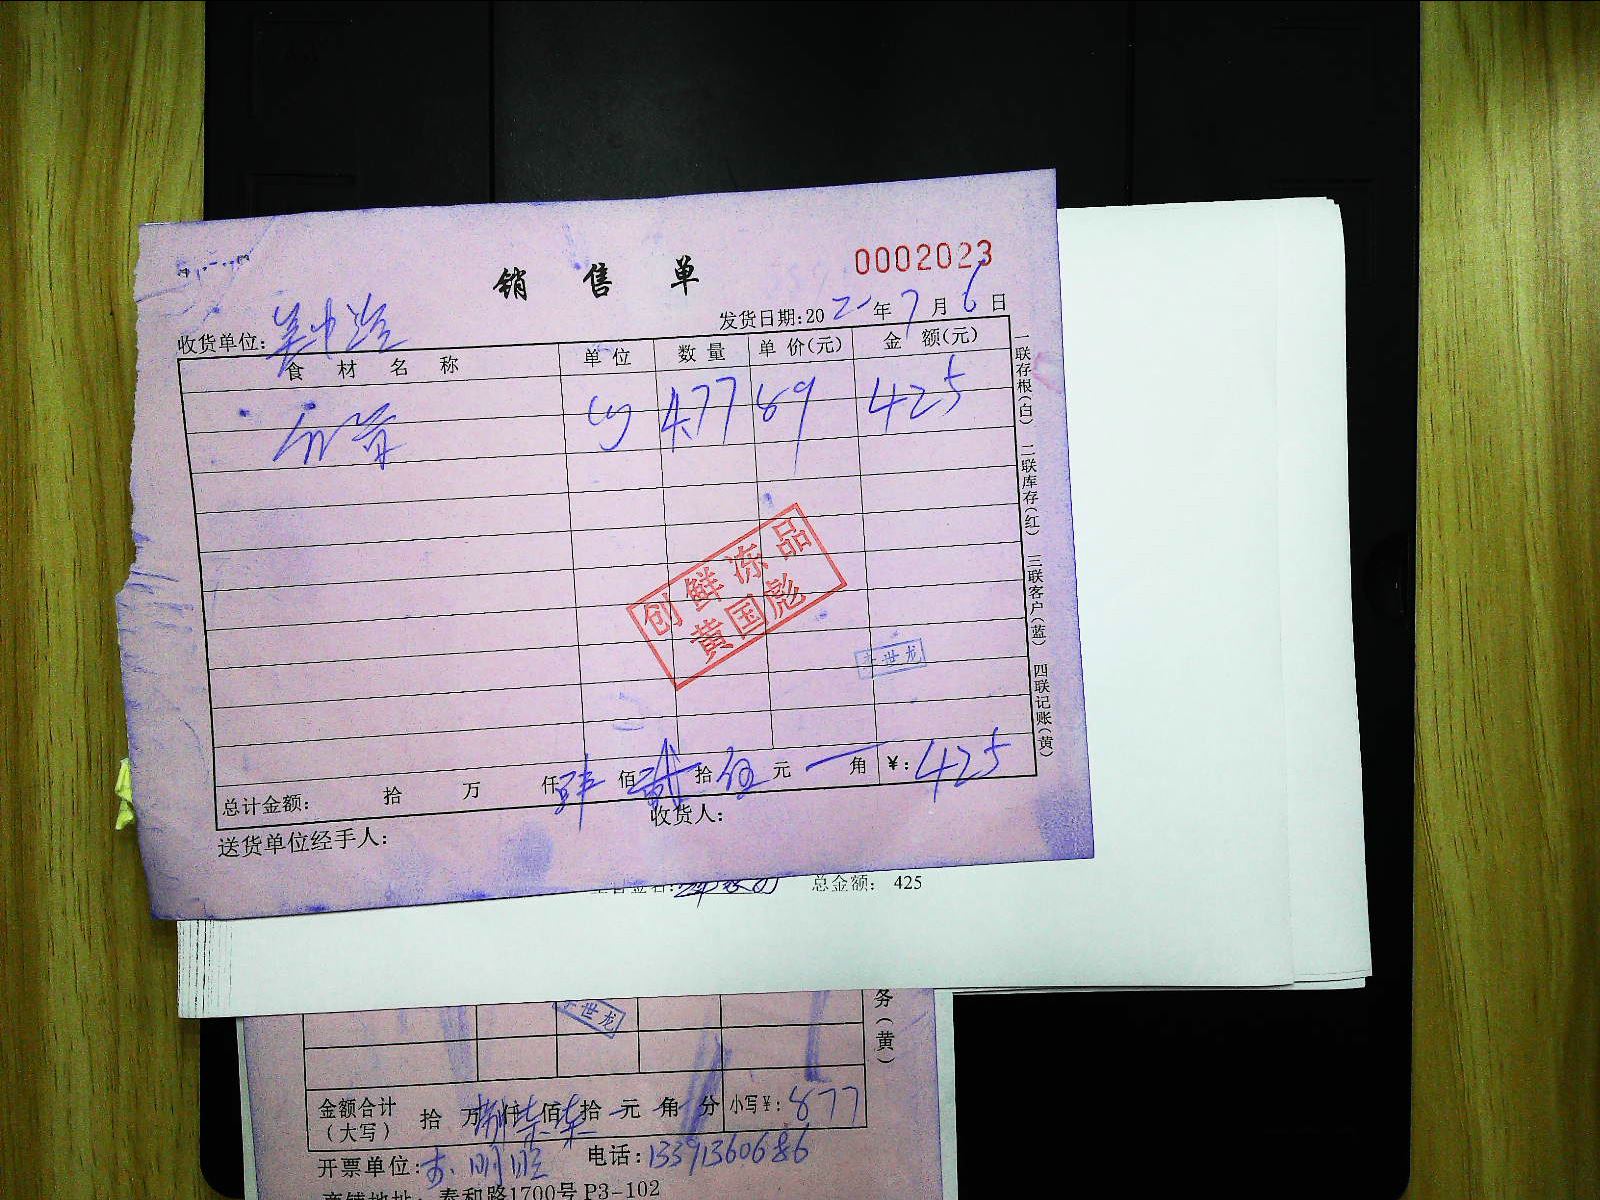 销售单
0002023
发货日期:202一年7月6日
收货单位:
食材名称 单位 数量 单价(元) 金额(元)
4.77 89 425
一联存根(白) 二联库存(红) 三联客户(蓝) 四联记账(黄)
创鲜冻品
黄国彪
世龙
总计金额: 拾 万 仟肆佰贰拾伍元一角 ¥:425
送货单位经手人: 收货人:
总金额: 425
世龙
务(黄)
金额合计(大写) 拾 万 仟 佰 拾 元 角 分 小写¥:877
开票单位: 电话:13391360686
商铺地址: 泰和路1700号P3-102